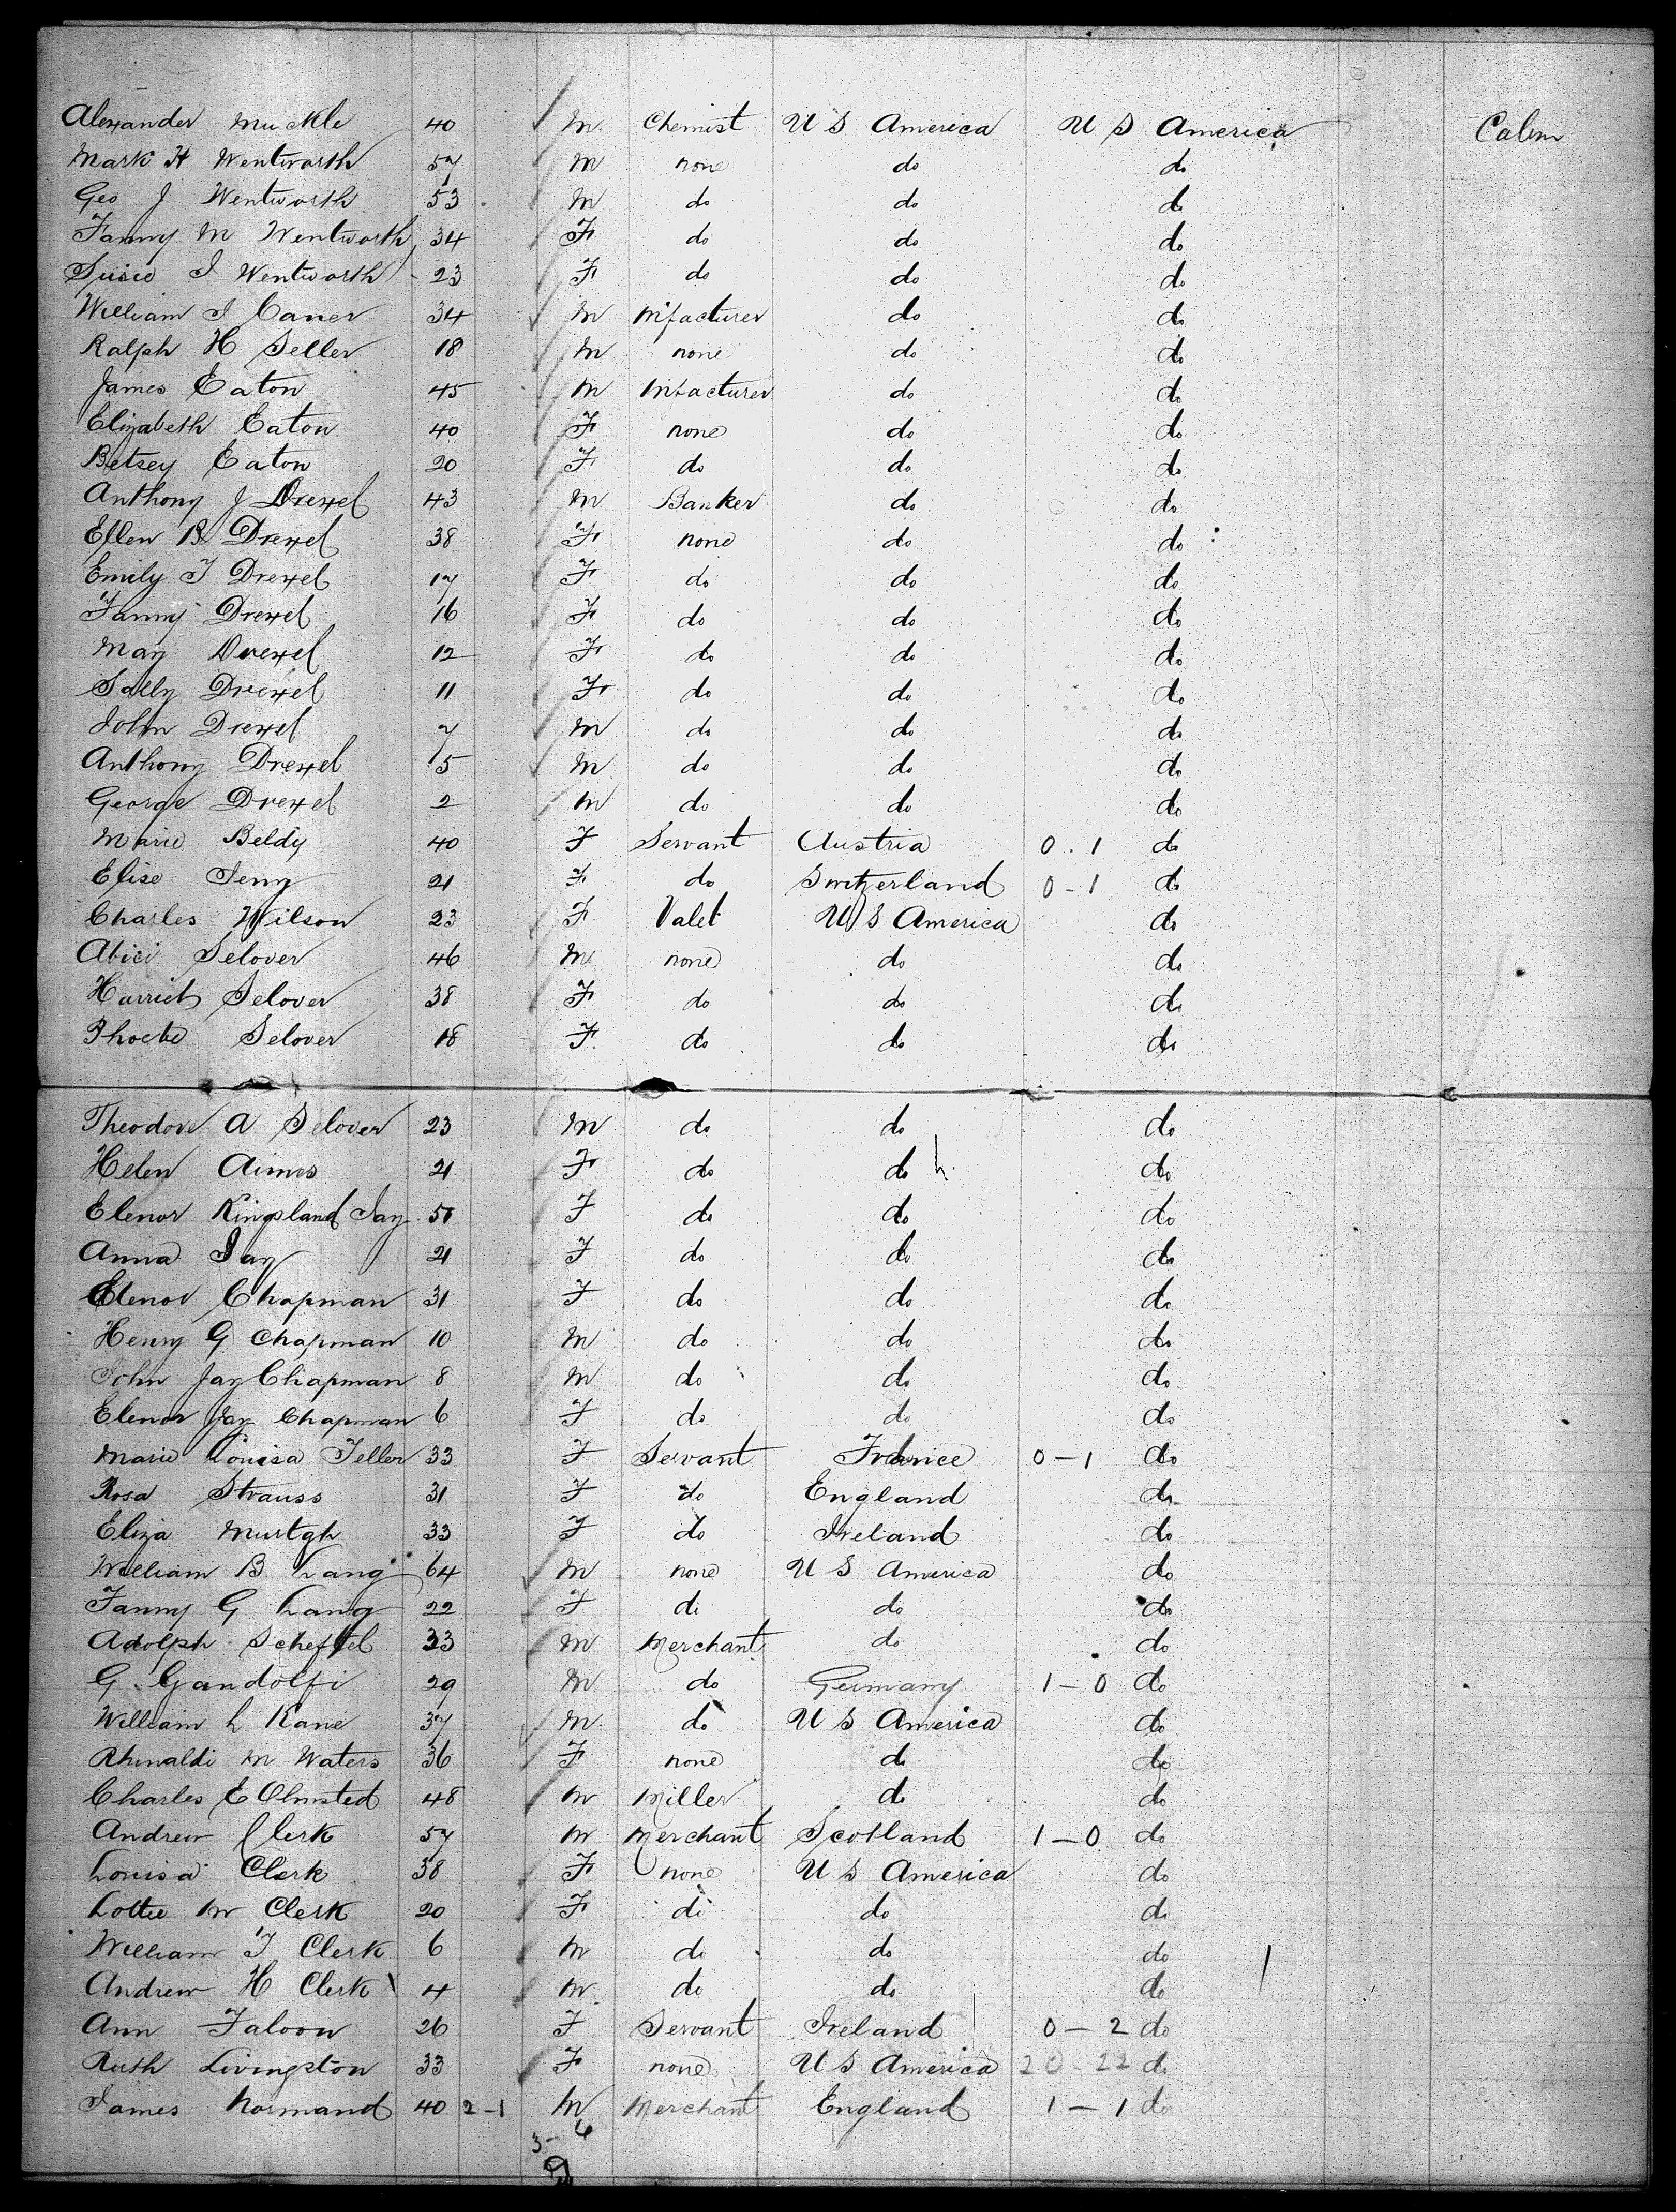 Alexander Muckle 40 M Chemist U S America U S America Cabin
Mark H Wentworth 57 M none do do
Geo J Wentworth 53 M do do do
Fanny M Wentworth 34 F do do do
Susie J Wentworth 23 F do do do
William J Caner 34 M Mfacturer do do
Ralph H Seller 18 M none do do
James Eaton 45 M Mfacturer do do
Elizabeth Eaton 40 F none do do
Betsey Eaton 20 F do do do
Anthony J Drexel 43 M Banker do do
Ellen B Drexel 38 F none do do
Emily T Drexel 17 F do do do
Fanny Drexel 16 F do do do
May Drexel 12 F do do do
Sally Drexel 11 F do do do
John Drexel 7 M do do do
Anthony Drexel 5 M do do do
George Drexel 2 M do do do
Marie Beldy 40 F Servant Austria 0.1 do
Elise Jenny 21 F do Switzerland 0-1 do
Charles Wilson 23 F Valet U S America do
Selover 46 M none do do
Harriet Selover 38 F do do do
Phoebe Selover 18 F do do do
Theodore A Selover 23 M do do do
Helen Aimes 21 F do do do
Elenor Kingsland Jay 51 F do do do
Anna Jay 21 F do do do
Elenor Chapman 31 F do do do
Henry G Chapman 10 M do do do
John Jay Chapman 8 M do do do
Elenor Jay Chapman 6 F do do do
Marie Louisa Teller 33 F Servant France 0-1 do
Rosa Strauss 31 F do England do
Eliza Murtgh 33 F do Ireland do
William B Lang 64 M none U S America do
Fanny G Lang 22 F do do do
Adolph Scheftel 33 M Merchant do do
G Gandolfi 29 M do Germany 1-0 do
William L Kane 37 M do U S America do
M Waters 36 F none do do
Charles E Olmsted 48 M Miller do do
Andrew Clerk 57 M Merchant Scotland 1-0 do
Louisa Clerk 38 F none U S America do
Lottie M Clerk 20 F do do do
William T Clerk 6 M do do do
Andrew H Clerk 4 M do do do
Ann Faloon 26 F Servant Ireland 0-2 do
Ruth Livingston 33 F none U S America 20-22 do
James Normand 40 2-1 M Merchant England 1-1 do
3- 6